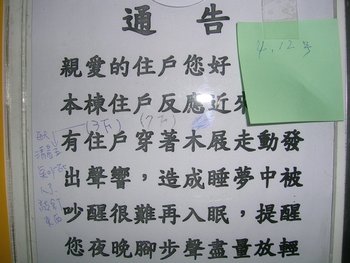 通告
4.12号
親愛的住戶您好
本棟住戶反應近來
(3F) (7F)
有住戶穿著木屐走動發
出聲響，造成睡夢中被
吵醒很難再入眠，提醒
您夜晚腳步聲盡量放輕